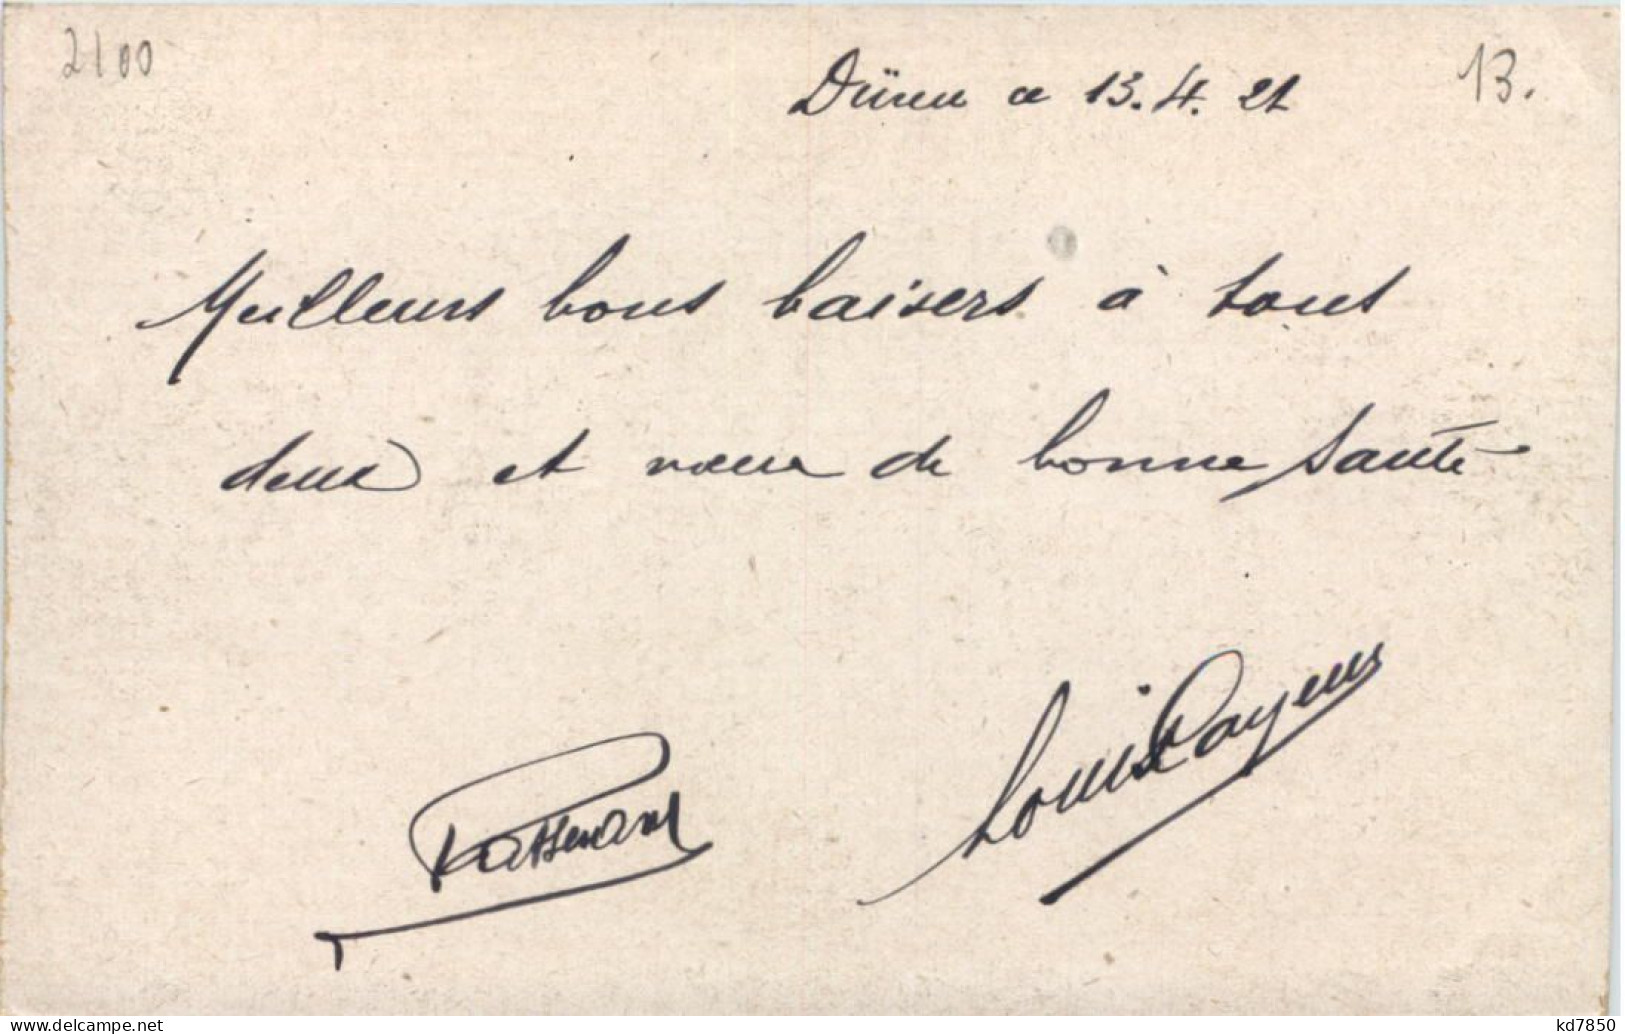 2100
Düren ce 13.4.21
13.
Meilleurs bons baisers à tous
deux et vœux de bonne santé
Louis
delcampe.net
kd7850